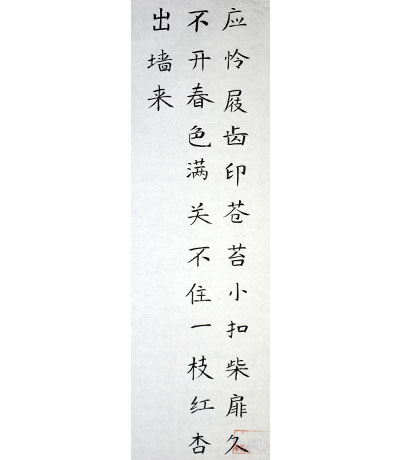 应怜屐齿印苍苔小扣柴扉久
不开春色满关不住一枝红杏
出墙来